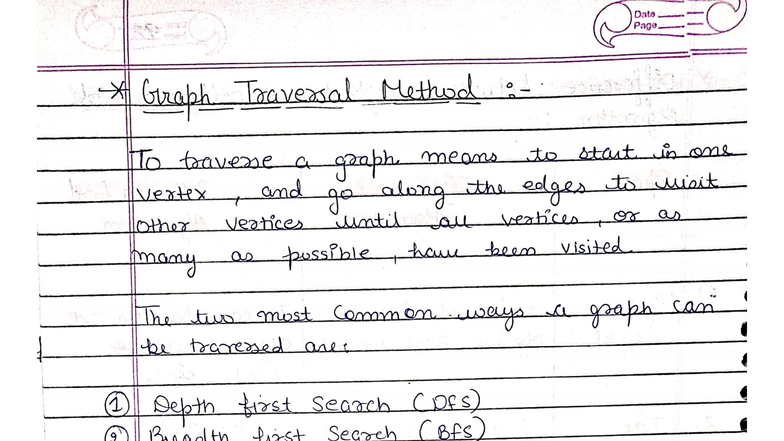 Date
Page
* Graph Traversal Method :-
To traverse a graph means to start in one
vertex, and go along the edges to visit
other vertices until all vertices, or as
many as possible, have been visited.
The two most common ways a graph can
be traversed are:
① Depth first search (DFS)
② Breadth first search (BFS)